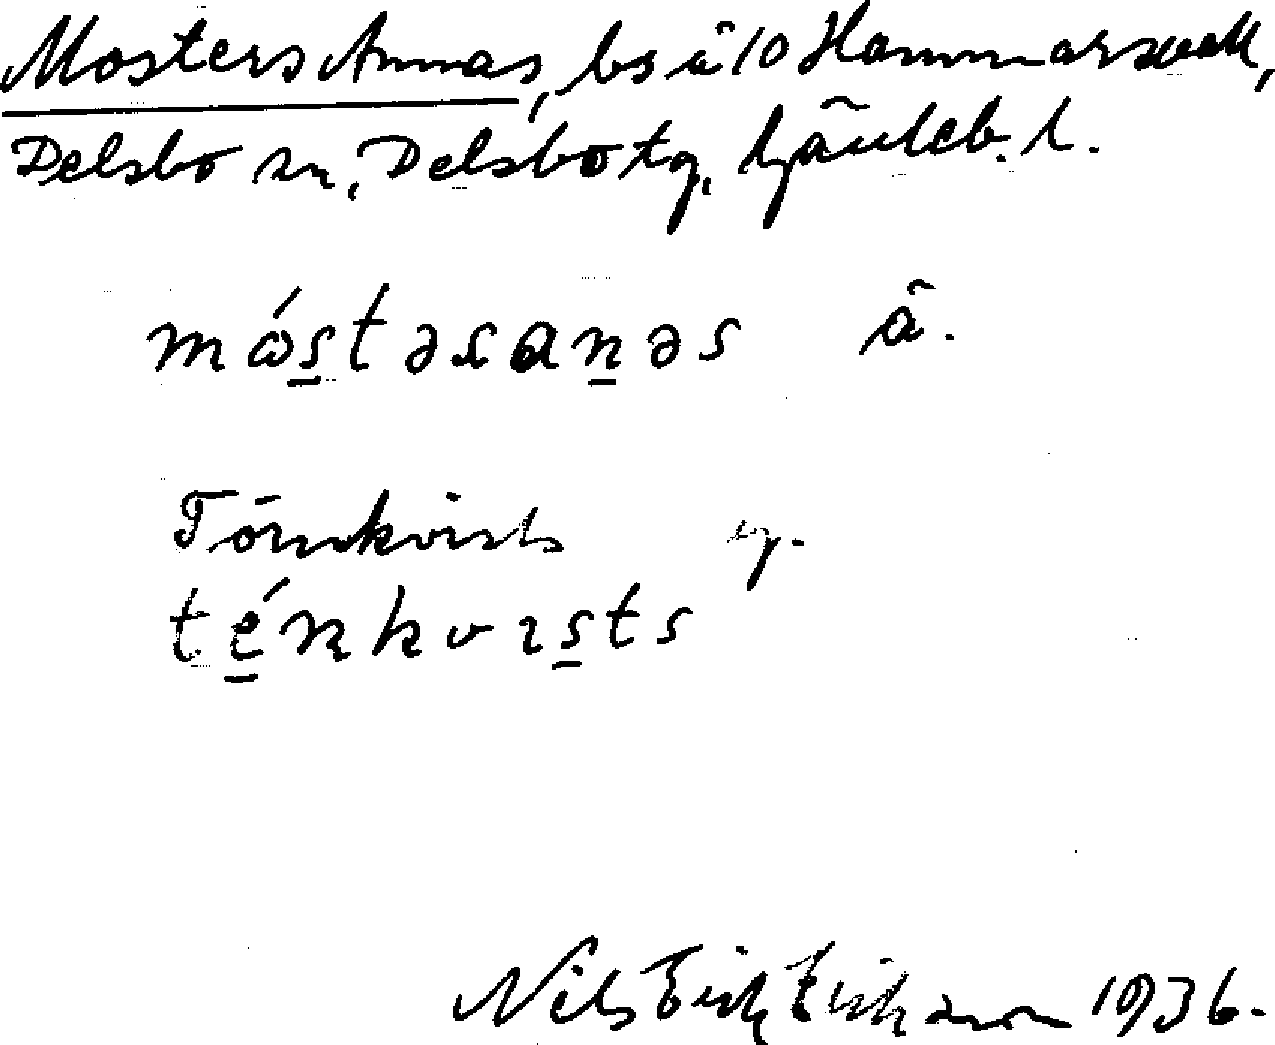 Mosters Annas, bs å 10 Hammarsvall,
Delsbo sn, Delsbo tg, Gävleb. l.
mɷ́s̲təsan̲əs ä.
Törnkvists y.
té̲nkvɪs̲ts
Nils Erik Eriksson 1936.